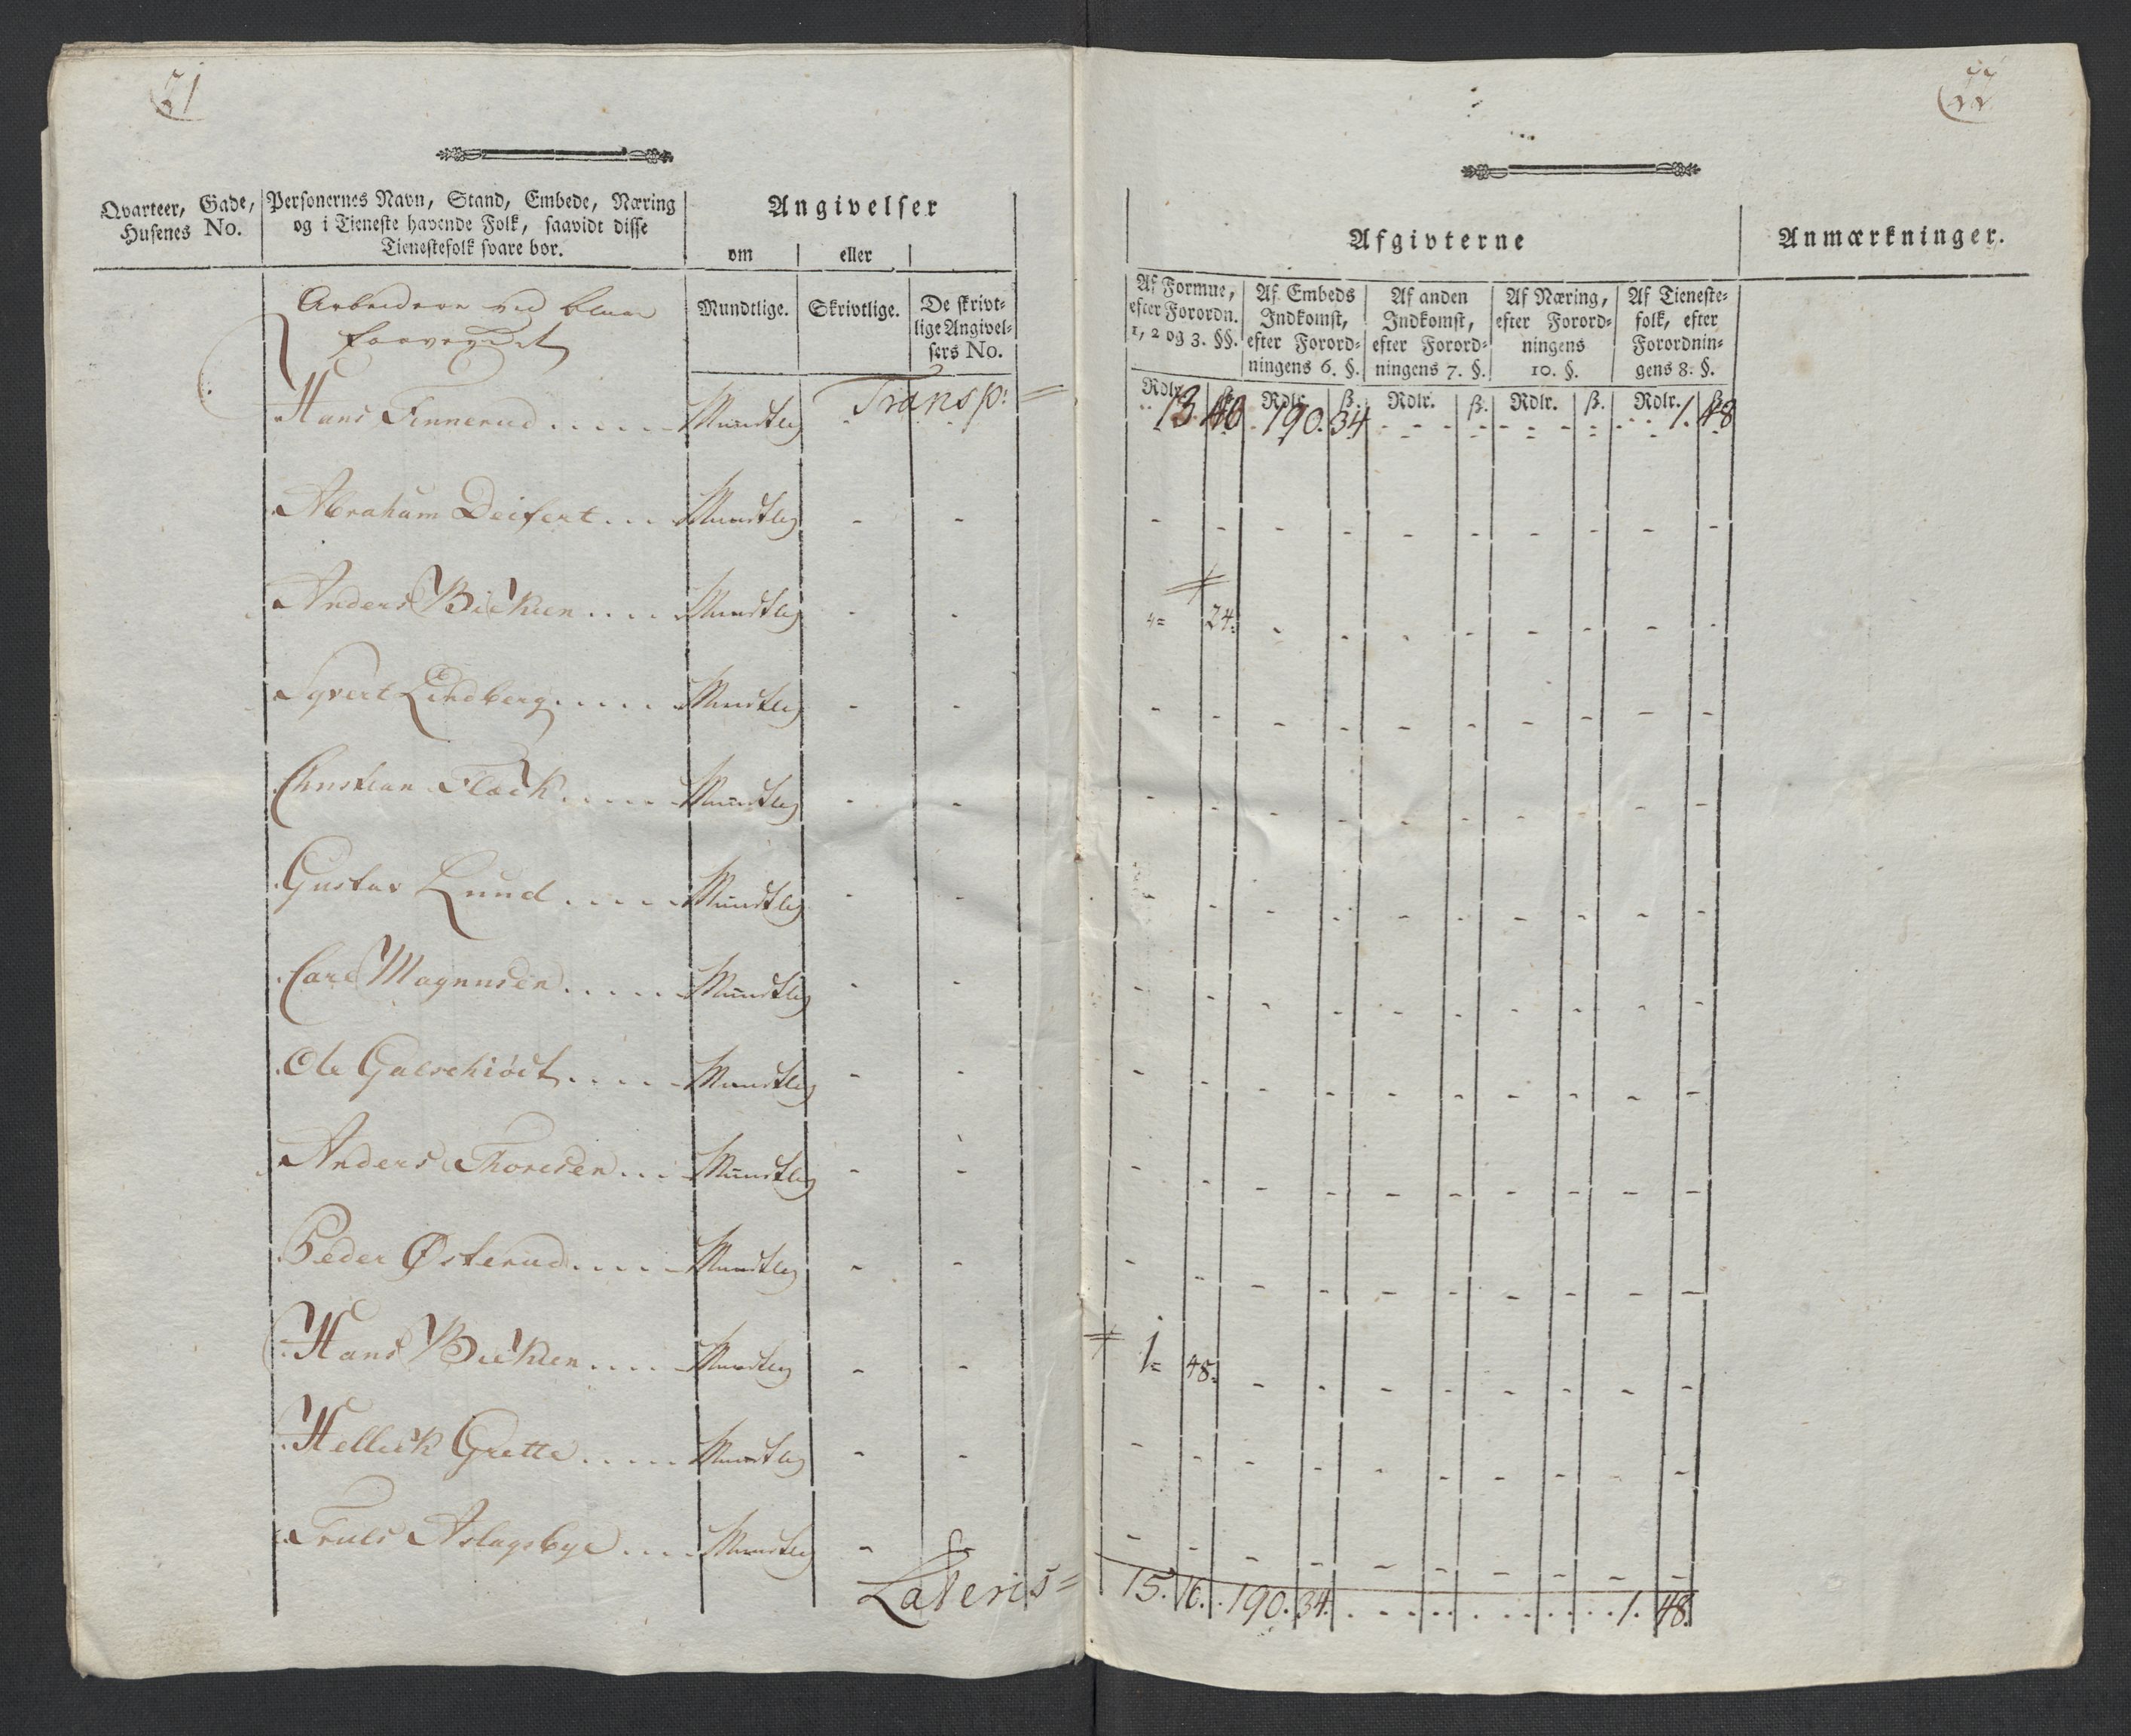 Qvarteer, Gade, Husenes No.
Personernes Navn, Stand, Embede, Næring og i Tieneste havende Folk, saavidt disse Tienestefolk svare bør.
Angivelser
om eller
Mundtlige. Skrivtlige. De skrivtlige Angivelsers No.
Afgivterne
Anmærkninger.
Af Formue, efter Forordn. 1, 2 og 3. §§.
Af Embeds Indkomst, efter Forordningens 6. §.
Af anden Indkomst, efter Forordningens 7. §.
Af Næring, efter Forordningens 10. §.
Af Tienestefolk, efter Forordningens 8. §.
Rdlr. ß. Rdlr. ß. Rdlr. ß. Rdlr. ß. Rdlr. ß.
Arbeidere ved blaae
farveværket
Hans Finnerud ..... Mundtlig Transp: = 13. 40 190. 34 1. 48
Abraham Deifert ... Mundtlig - -
Anders Bickien .... Mundtlig - - 24.
Syvert Lindberg ..... Mundtlig - -
Christian Flæck ..... Mundtlig - -
Gustav Lund ..... Mundtlig - -
Carl Magnusen ..... Mundtlig - -
Ole Galschiødt ..... Mundtlig - -
Anders Thoresen ... Mundtlig - -
Peder Østerud ..... Mundtlig - -
Hans Bickien .... Mundtlig - - 1= 48.
Helleck Grette ..... Mundtlig - -
Truls Aslagsbye .... Mundtlig -
Lateris = 15. 16. 190. 34. 1. 48.